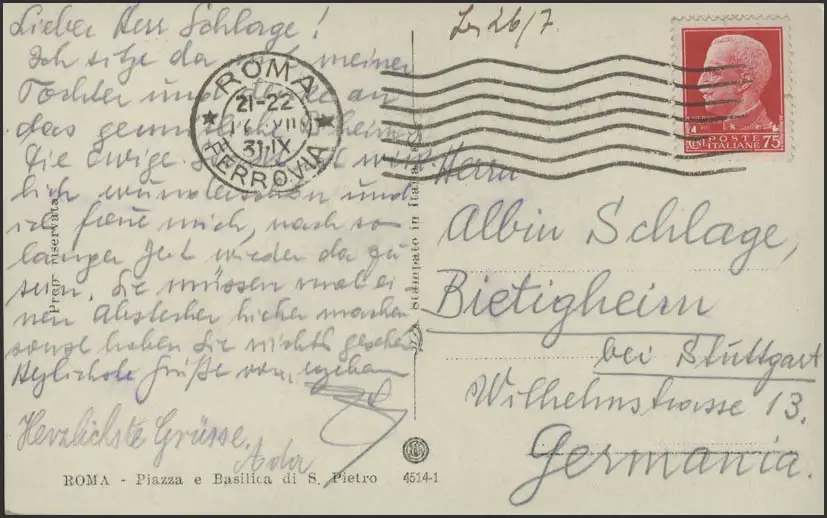 Lieber Herr Schlage!
Ich sitze da mit meiner
Tochter und denke an
das gemütliche Heim
Die ewige Stadt ist wirk
lich wunderschön und
ich freue mich, nach so
langer Zeit wieder da zu
sein. Sie müssen mal ei-
nen Abstecher hieher machen
sonst haben Sie nichts gesehen
Herzlichste Grüße vom
Herzlichste Grüsse,
Ada
ROMA - Piazza e Basilica di S. Pietro 4514-1
Propr. riservata
Stampato in Italia
26/7.
ROMA
21-22
31.IX
FERROVIA
POSTE
ITALIANE
CENT 75
Herrn
Albin Schlage,
Bietigheim
bei Stuttgart
Wilhelmstrasse 13.
Germania.